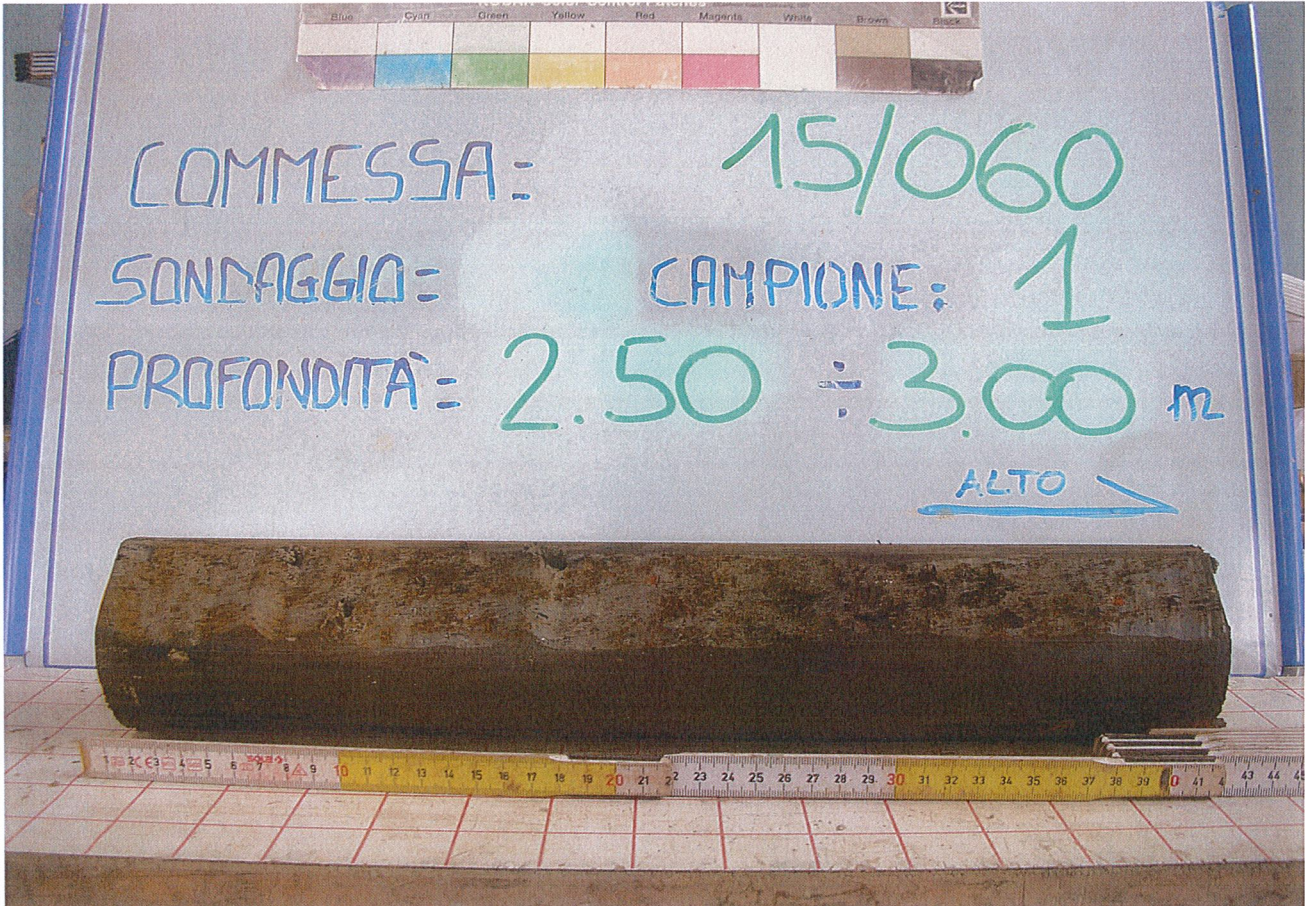 Blue Cyan Green Yellow Red Magenta White Brown Black
COMMESSA: 15/060
SONDAGGIO: CAMPIONE: 1
PROFONDITÀ: 2.50 ÷ 3.00 m
ALTO
1 2 3 4 5 6 7 8 9 10 11 12 13 14 15 16 17 18 19 20 21 22 23 24 25 26 27 28 29 30 31 32 33 34 35 36 37 38 39 41 43 44